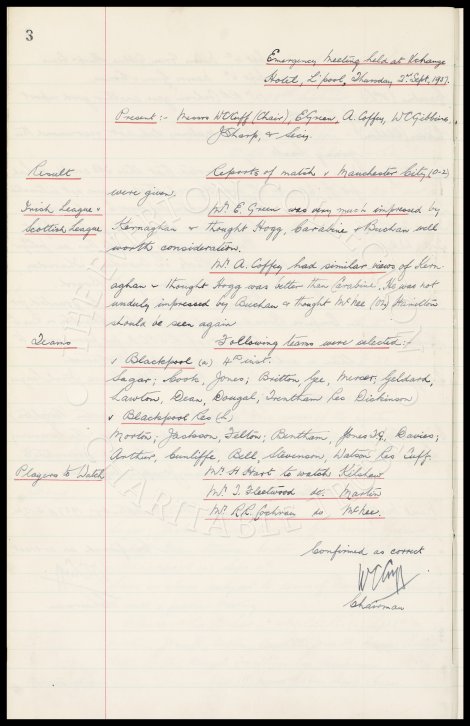 3
Emergency Meeting held at Xchange
Hotel, L'pool, Thursday 2nd Sept, 1937.
Present :- Messrs W C Cuff (Chair), E Green, A. Coffey, W C Gibbins,
J Sharp, & Secy.
Result
Reports of match v Manchester City (0-2)
were given.
Irish League v
Scottish League
Mr. E. Green was very much impressed by
Kernaghan & thought Hogg, Carabine & Buchan well
worth consideration.
Mr. A. Coffey had similar views of Kern-
aghan & thought Hogg was better than Carabine. He was not
unduly impressed by Buchan & thought McNee (Oh) Hamilton
should be seen again
Teams
Following teams were selected:-
v Blackpool (a) 4th inst.
Sagar; Cook, Jones; Britton, Gee, Mercer; Geldard,
Lawton, Dean, Dougal, Trentham Res Dickinson
v Blackpool Res (h)
Morton; Jackson, Felton; Bentham, Jones T.G, Davies;
Arthur, Cunliffe, Bell, Stevenson, Watson Res Tuff.
Players to Watch
Mr. H Hart to watch Kilshaw
Mr. T. Fleetwood do. Martin
Mr. R.R. Cochran do McNee.
Confirmed as correct
W C Cuff
Chairman